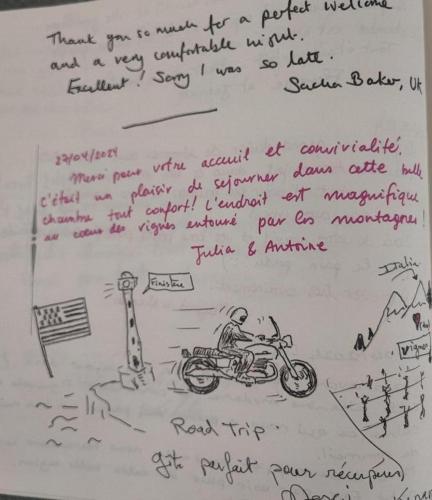 Thank you so much for a perfect welcome
and a very comfortable night.
Excellent! Sorry I was so late.
Sacha Baker, UK
27/04/2024
Merci pour votre accueil et convivialité.
C'était un plaisir de sejourner dans cette belle
chambre tout confort! L'endroit est magnifique
au coeur des vignes entouré par les montagnes!
Julia & Antoine
Italia
Finistère
Vignes
Road Trip
gîte parfait pour récupérer
Merci